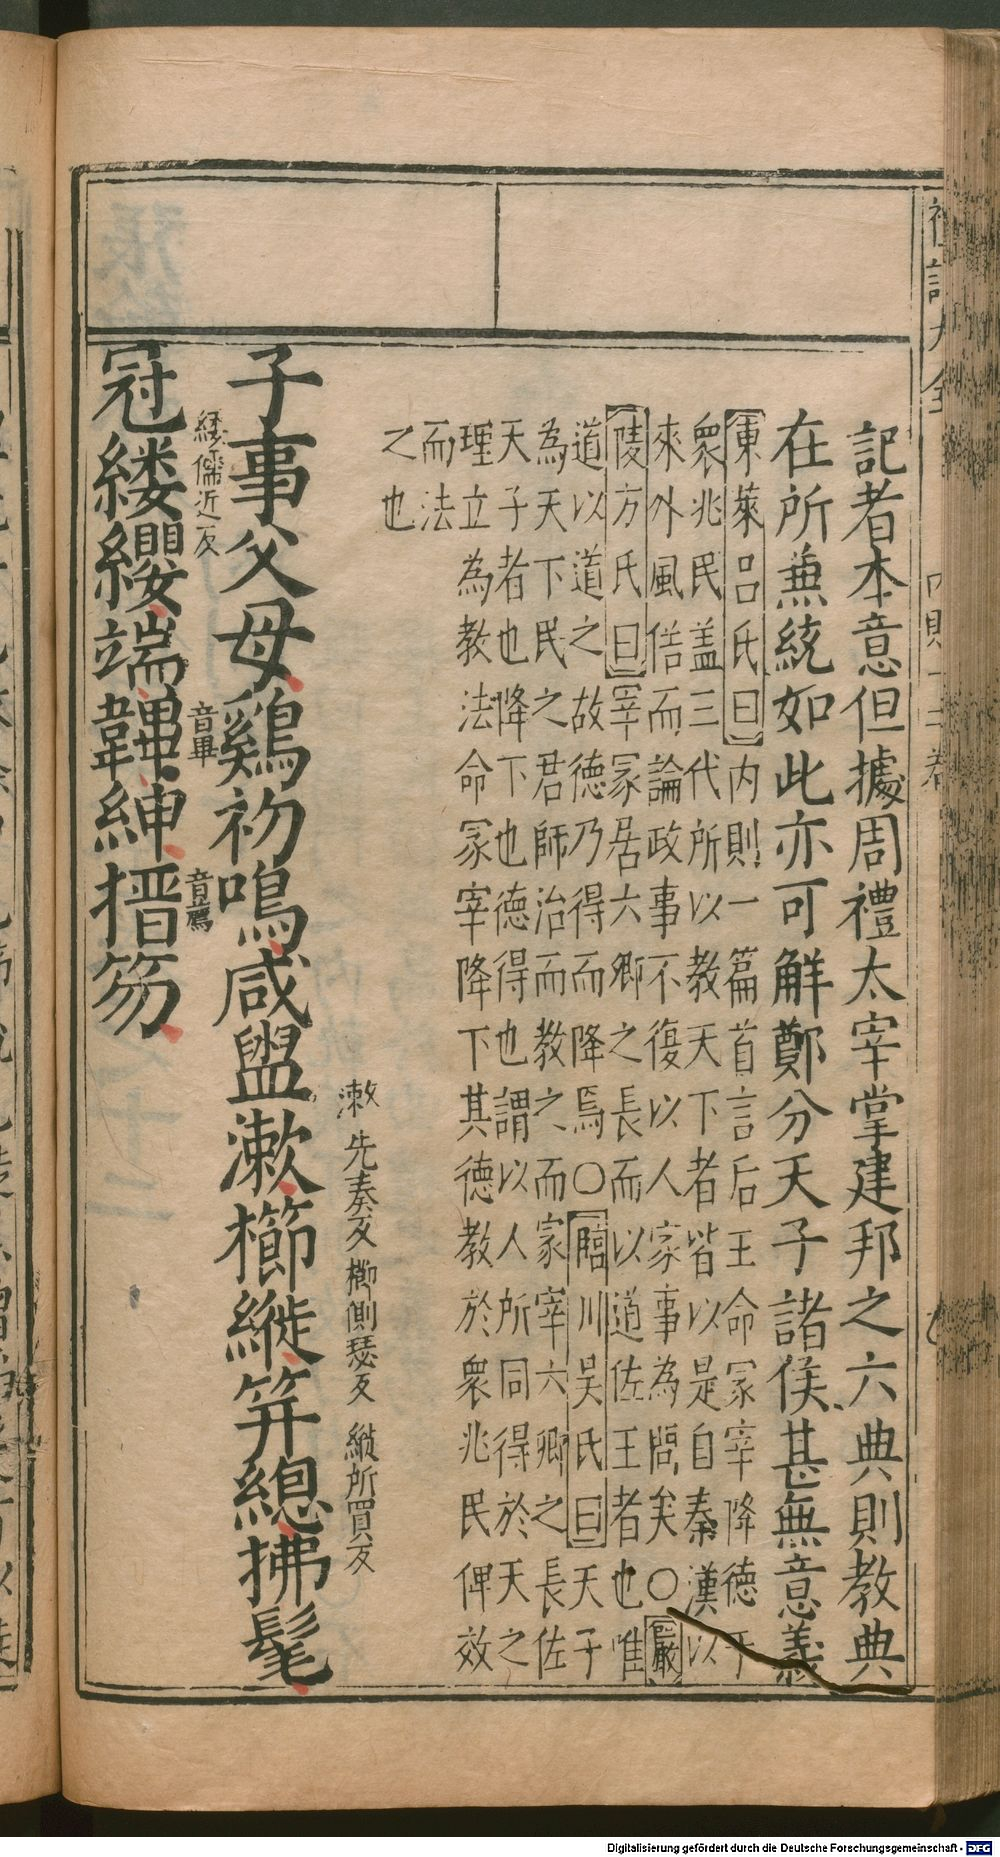 記者本意但據周禮太宰掌建邦之六典則教典
在所兼統如此亦可解鄭分天子諸侯甚無意義
東萊呂氏曰内則一篇首言后王命冢宰降德于
衆兆民盖三代所以教天下者皆以是自秦漢以
來外風俗而論政事不復以人家事為問矣○嚴
陵方氏曰宰冢居六卿之長而以道佐王者也惟
道以道之故德乃得而降焉○臨川吳氏曰天子
為天下民之君師治而教之而冢宰六卿之長佐
天子者也降下也德得也謂以人所同得於天之
理立為教法命冢宰降下其德教於衆兆民俾效
而法
之也
漱先奏反櫛側瑟反縰所買反
子事父母鷄初鳴咸盥漱櫛縰笄總拂髦
緌儒追反
音畢
音薦
冠緌纓端韠紳搢笏
内則十二卷
Digitalisierung gefördert durch die Deutsche Forschungsgemeinschaft - DFG